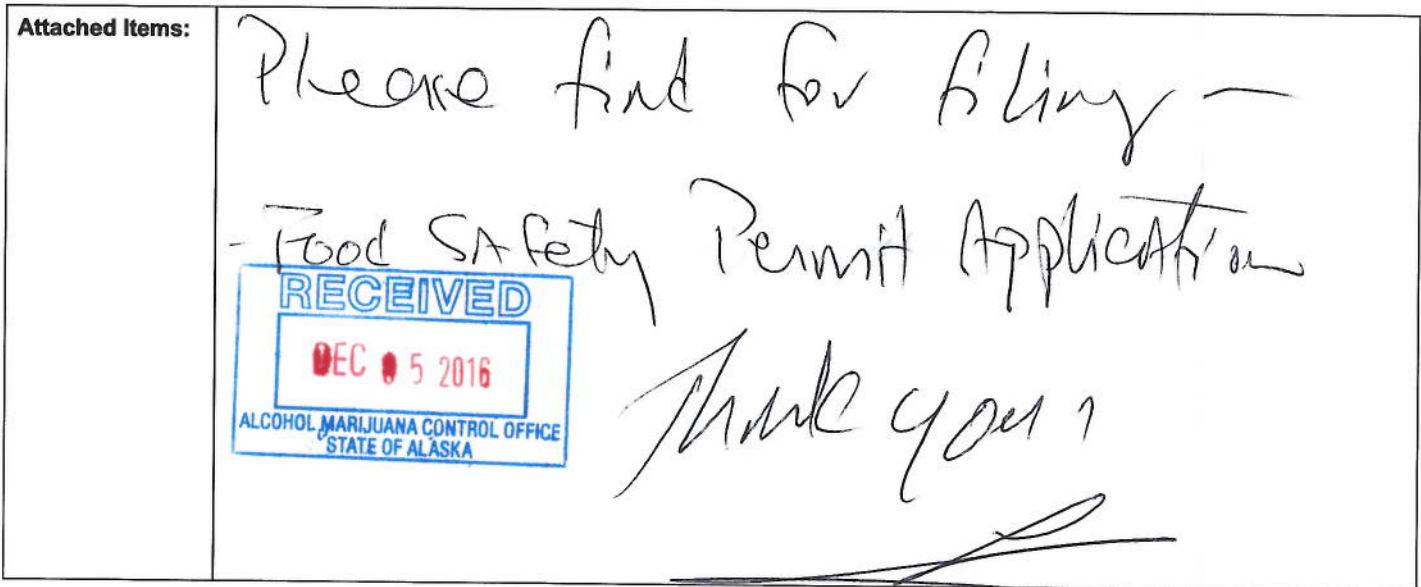 Attached Items:
Please find for filing –
- Food Safety Permit Application
RECEIVED
DEC 05 2016
ALCOHOL MARIJUANA CONTROL OFFICE
STATE OF ALASKA
Thank you,